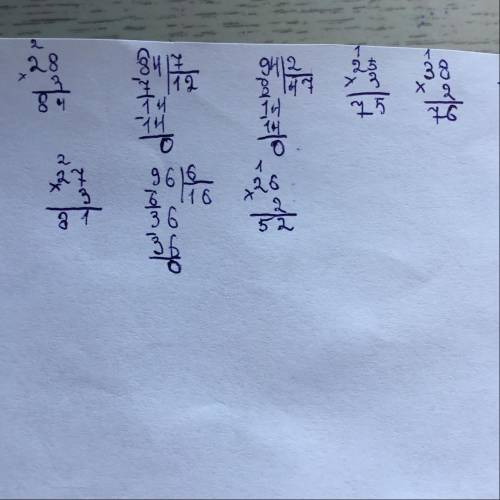 2 28 × 3 84
84 7 7 12 14 14 0
94 2 8 47 14 14 0
1 25 × 3 75
1 38 × 2 76
2 27 × 3 81
96 6 6 16 36 36 0
1 26 × 2 52